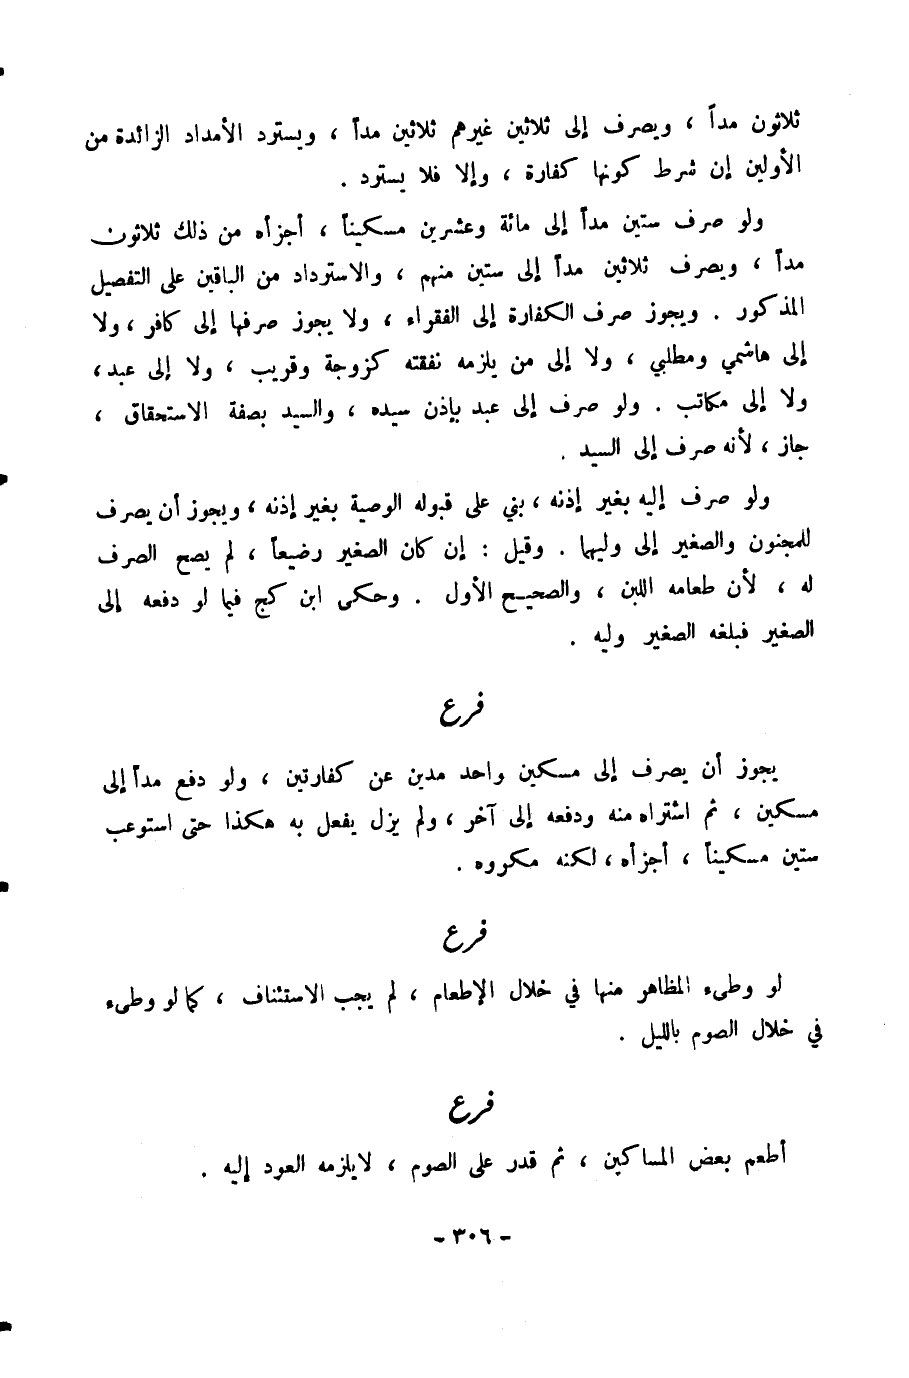 ثلاثون مداً ، ويصرف إلى ثلاثين غيرهم ثلاثين مداً ، ويسترد الأمداد الزائدة من
الأولين إن شرط كونها كفارة ، وإلا فلا يسترد .
ولو صرف ستين مداً إلى مائة وعشرين مسكيناً ، أجزأه من ذلك ثلاثون
مداً ، ويصرف ثلاثين مداً إلى ستين منهم ، والاسترداد من الباقين على التفصيل
المذكور . ويجوز صرف الكفارة إلى الفقراء ، ولا يجوز صرفها إلى كافر ، ولا
إلى هاشمي ومطلبي ، ولا إلى من يلزمه نفقته كزوجة وقريب ، ولا إلى عبد ،
ولا إلى مكاتب . ولو صرف إلى عبد بإذن سيده ، والسيد بصفة الاستحقاق ،
جاز ، لأنه صرف إلى السيد .
ولو صرف إليه بغير إذنه ، بني على قبوله الوصية بغير إذنه ، ويجوز أن يصرف
للمجنون والصغير إلى وليها . وقيل : إن كان الصغير رضيعاً ، لم يصح الصرف
له ، لأن طعامه اللبن ، والصحيح الأول . وحكى ابن كج فيما لو دفعه إلى
الصغير فبلغه الصغير وليه .
فرع
يجوز أن يصرف إلى مسكين واحد مدين عن كفارتين ، ولو دفع مداً إلى
مسكين ، ثم اشتراه منه ودفعه إلى آخر ، ولم يزل يفعل به هكذا حتى استوعب
ستين مسكيناً ، أجزأه ، لكنه مكروه .
فرع
لو وطىء المظاهر منها في خلال الإطعام ، لم يجب الاستئناف ، كما لو وطىء
في خلال الصوم بالليل .
فرع
أطعم بعض المساكين ، ثم قدر على الصوم ، لا يلزمه العود إليه .
- ٣٠٦ -